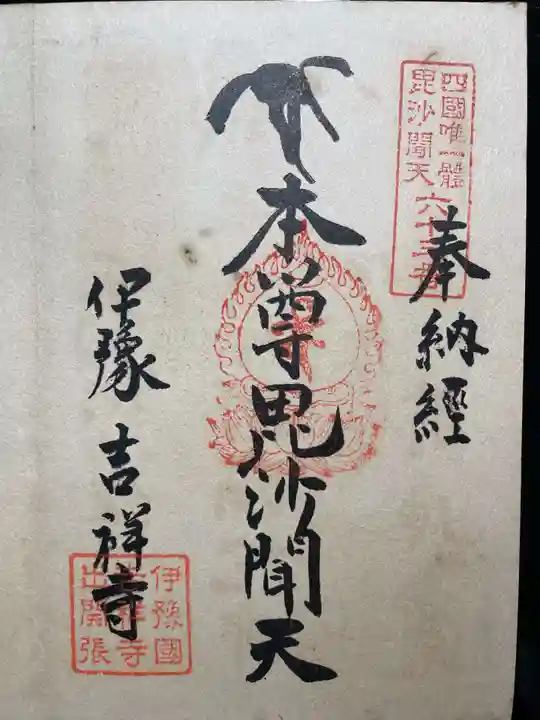 四國唯一體
毘沙聞天六十三番
奉納經
本尊毘沙聞天
伊豫 吉祥寺
伊豫國
吉祥寺
出開張